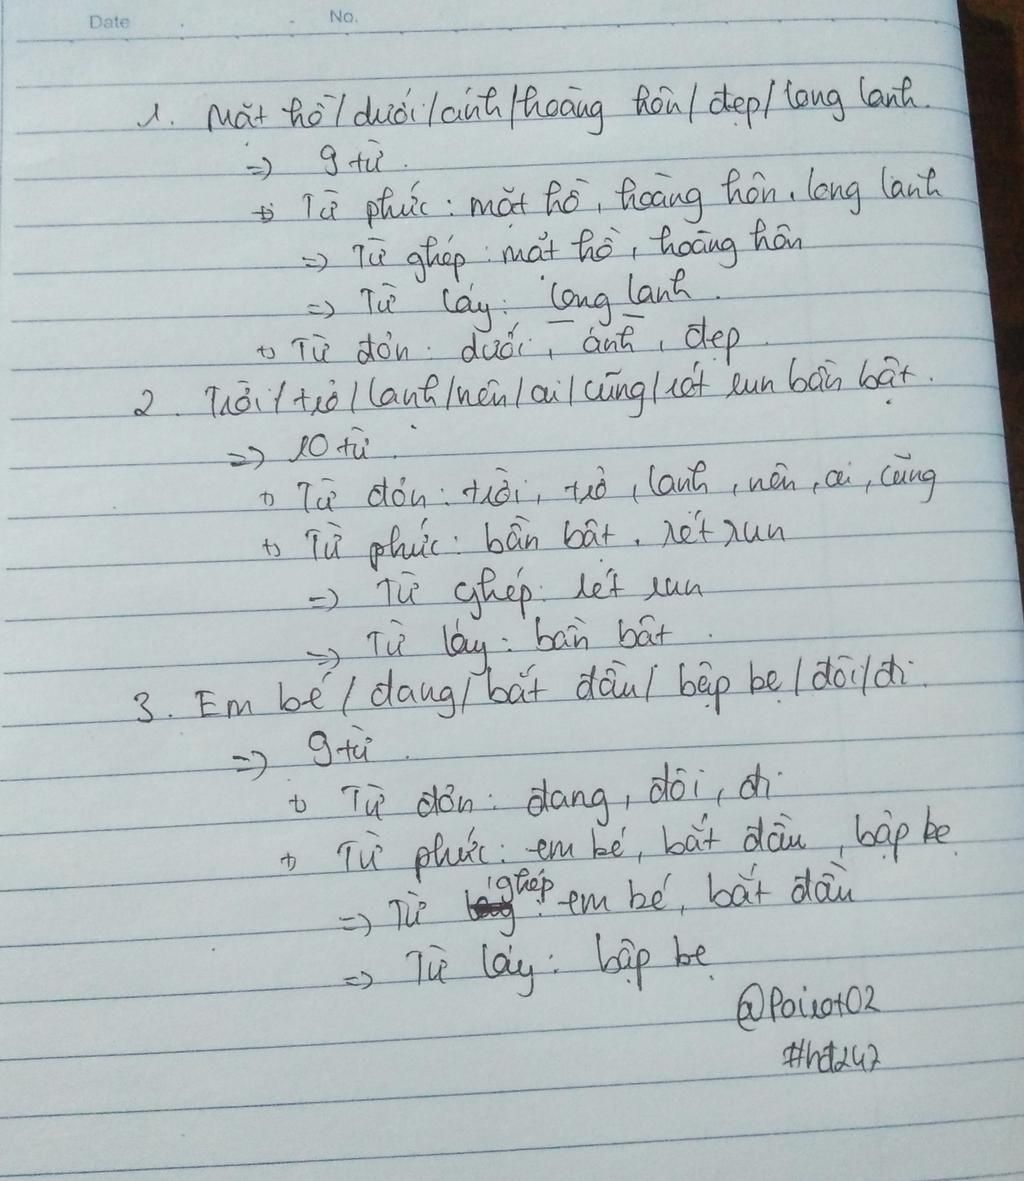 Date No.
1. Mặt hồ/dưới/ánh/hoàng hôn/đẹp/long lanh.
=> 9 từ.
+ Từ phức: mặt hồ, hoàng hôn, long lanh
=> Từ ghép: mặt hồ, hoàng hôn
=> Từ láy: long lanh.
+ Từ đơn: dưới, ánh, đẹp.
2. Trời/trở/lạnh/nên/ai/cũng/rét run bần bật.
=> 10 từ.
+ Từ đơn: trời, trở, lạnh, nên, ai, cũng
+ Từ phức: bần bật, rét run
=> Từ ghép: rét run
=> Từ láy: bần bật.
3. Em bé/đang/bắt đầu/bập bẹ/đòi/đi.
=> 9 từ.
+ Từ đơn: đang, đòi, đi
+ Từ phức: em bé, bắt đầu, bập bẹ
=> Từ ghép: em bé, bắt đầu
=> Từ láy: bập bẹ
@Poirot02
#hd247